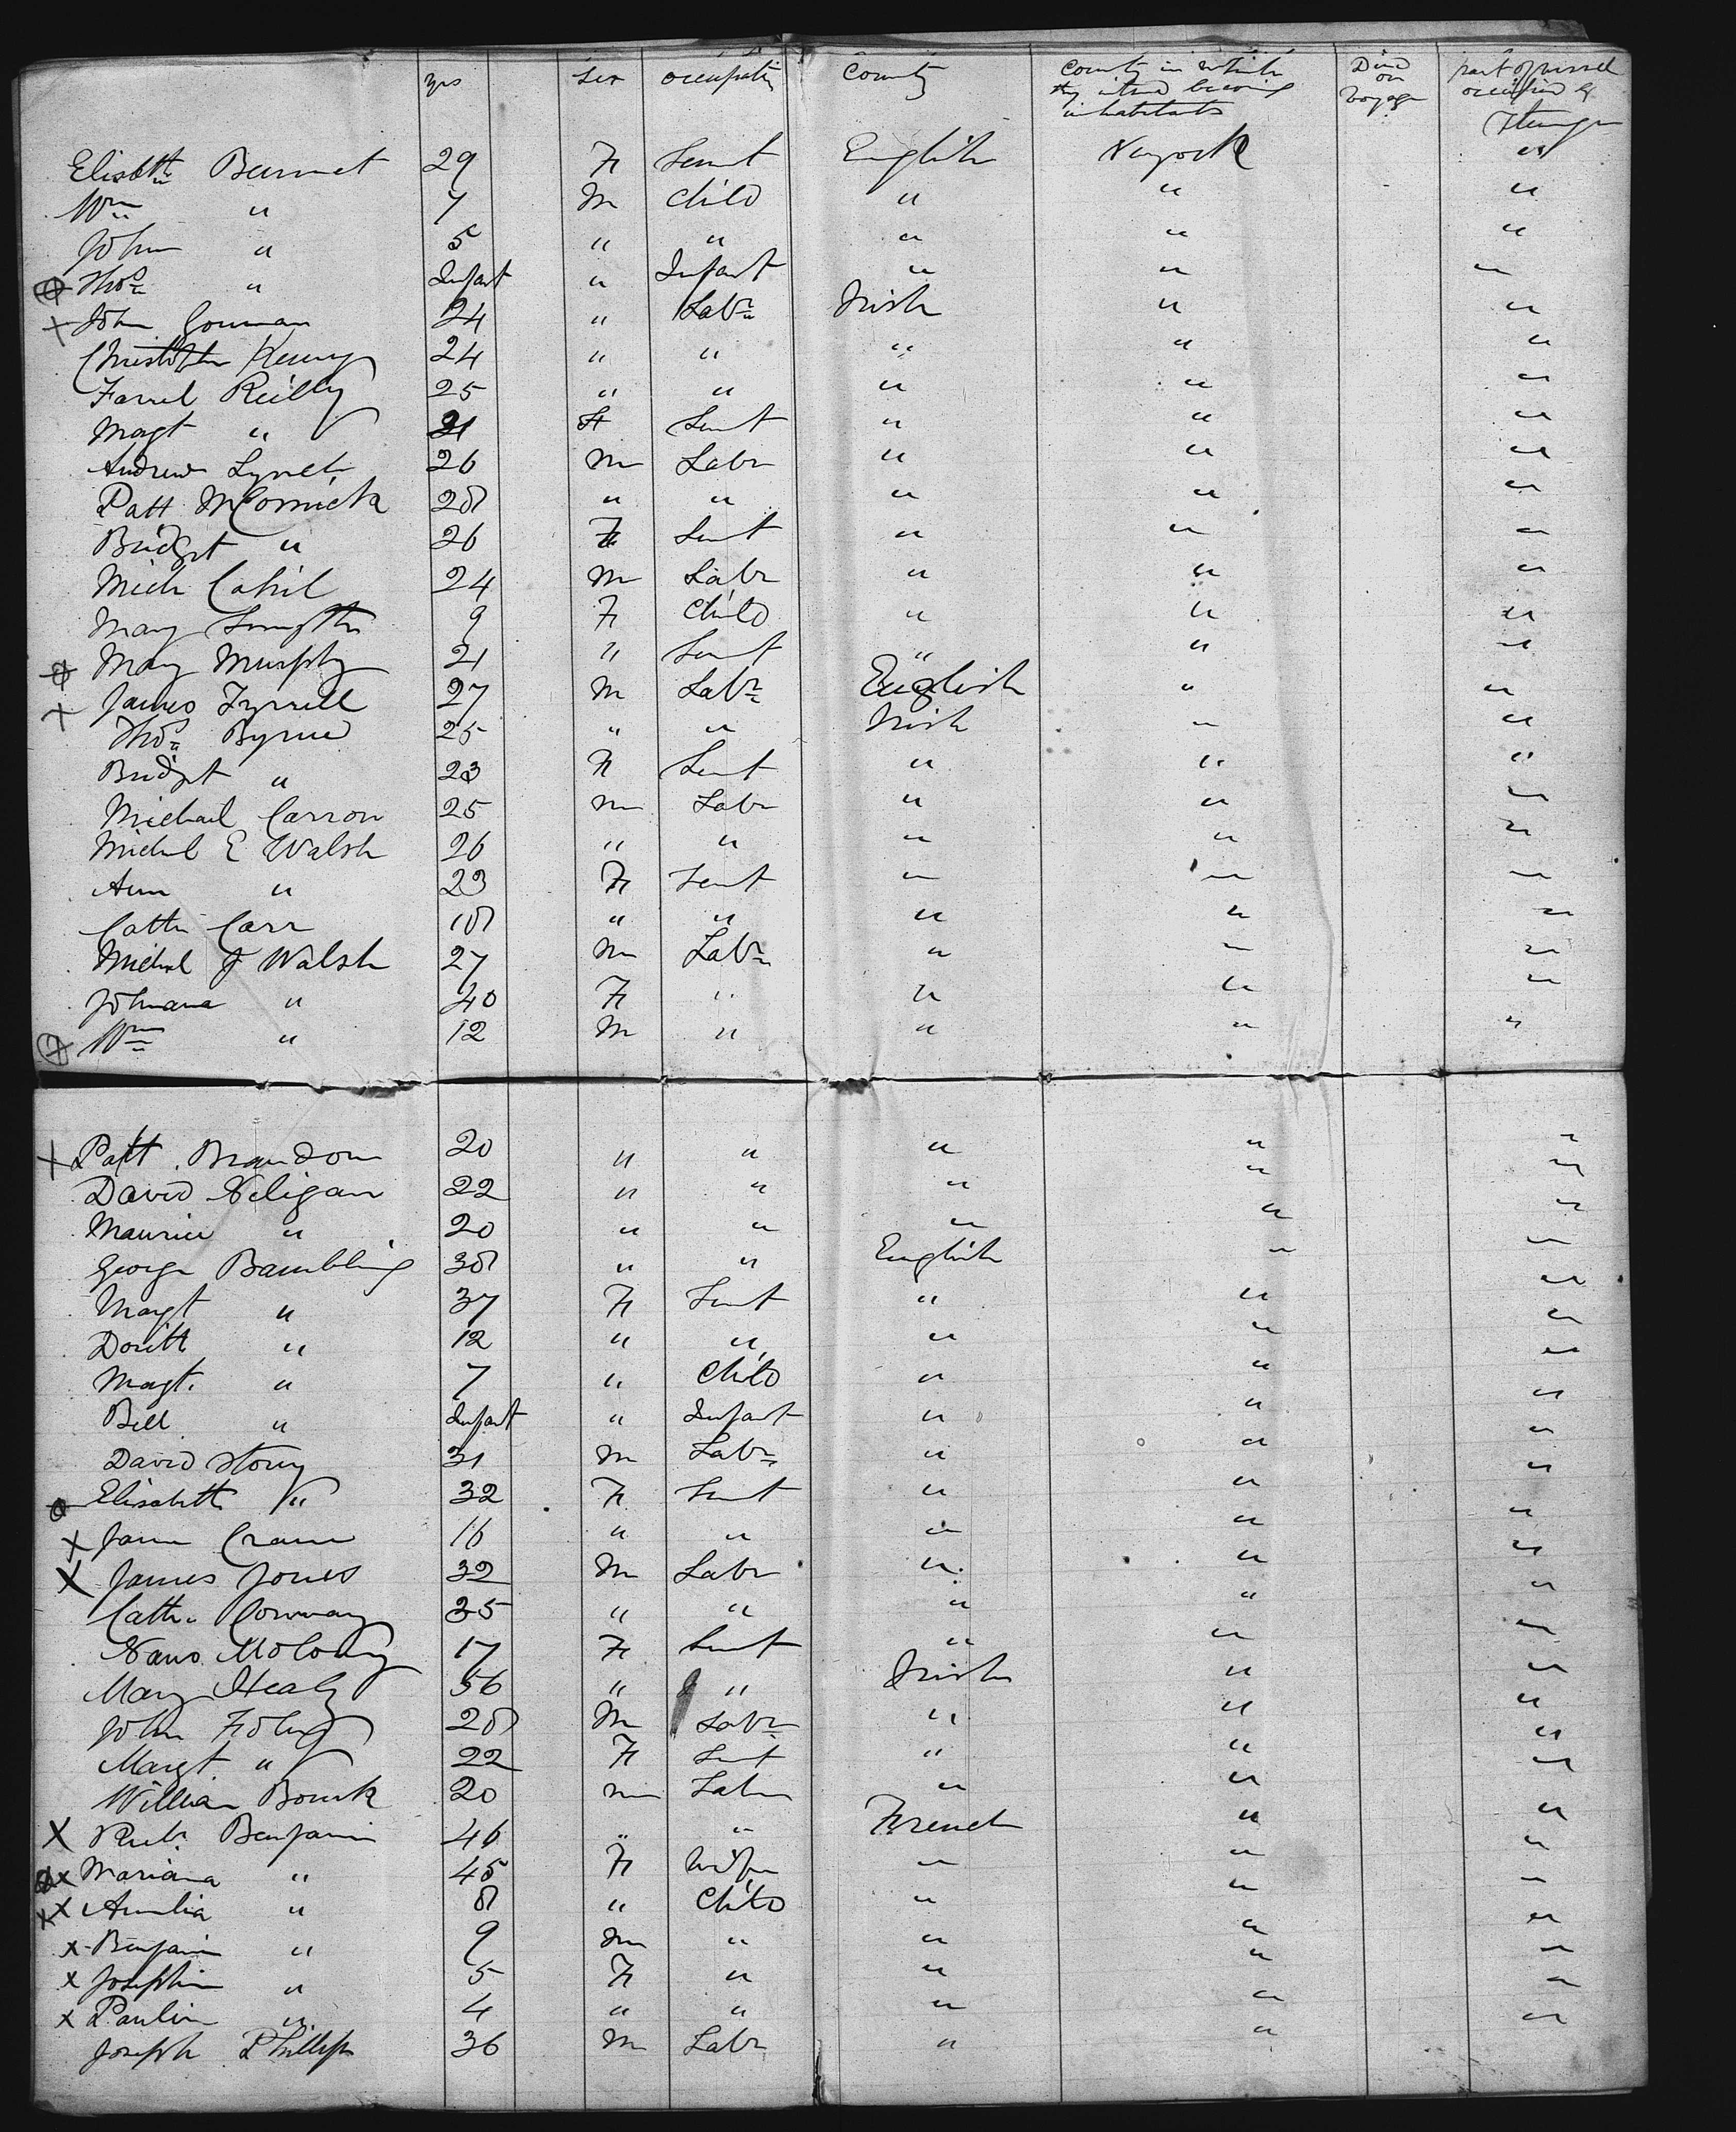 yrs Sex occupati County County in which they intend becoming inhabitants Died on Voyage part of vessel occupied by
Steerage
Elisbth Burnet 29 F Servt English Newyork "
Wm " 7 M Child " " "
John " 5 " " " " "
Thos " Infant " Infant " " "
+ John Gorman 24 " Labr Irish " "
Christopher Kenny 24 " " " " "
Farrel Reilly 25 " " " " "
Magt " 21 F Servt " " "
Andrew Lynch 26 m Labr " " "
Patt McCormick 28 " " " " "
Bridget " 26 F Servt " " "
Mich Cahil 24 m Labr " " "
Mary Smyth 9 F Child " " "
Mary Murphy 21 " Servt " " "
+ James Tyrrell 27 M Labr English " "
Thos Byrne 25 " " Irish " "
Bridget " 23 F Servt " " "
Michael Carron 25 m Labr " " "
Michel E Walsh 26 " " " " "
Ann " 23 F Servt " " "
Cath Carr 18 " " " " "
Michel J Walsh 27 m Labr " " "
Johnana " 40 F " " " "
Wm " 12 M " " " "
+ Patt Brandon 20 " " " " "
David Neligan 22 " " " " "
Maurice " 20 " " " " "
George Bambling 38 " " English " "
Magt " 37 F Servt " " "
Doritt " 12 " " " " "
Magt. " 7 " Child " " "
Bell " Infant " Infant " " "
David Story 31 m Labr " " "
Elisabeth " 32 F Servt " " "
x Jann Crann 16 " " " " "
X James Jones 32 M Labr " " "
Cath. Conway 35 " " " " "
Nano Molony 17 F Servt " " "
Mary Healy 56 " " Irish " "
John Foley 28 M Labr " " "
Margt. " 22 F Servt " " "
William Bourk 20 m Labr " " "
X Benjamin 46 " " French " "
x Mariana " 45 F Wife " " "
x x Amelia " 8 " Child " " "
x Benjamin " 9 m " " " "
x Josephin " 5 F " " " "
x Paulin " 4 " " " " "
Joseph Phillips 36 M Labr " " "